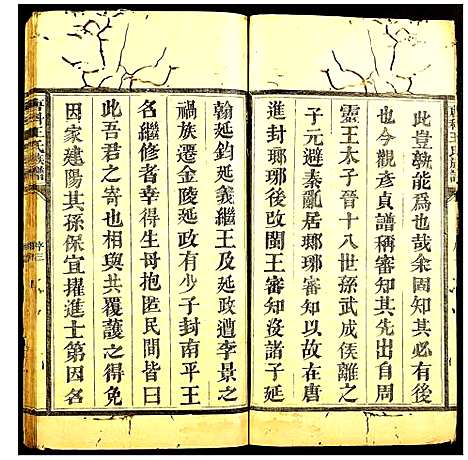 此豈孰能爲也哉余固知其必有後
也今觀彥貞譜稱審知其先出自
靈王太子晉十八世孫武成侯離之
子元避秦亂居瑯琊審知以故在唐
進封瑯琊後改閩王審知沒諸子延
翰延鈞延義繼王及延政遭李景之
禍族遷金陵延政有少子封南平王
名繼修者幸得生母抱匿民間皆曰
此吾君之寄也相與共覆護之得免
因家建陽其孫保宜擢進士第因名
王氏族譜
序三